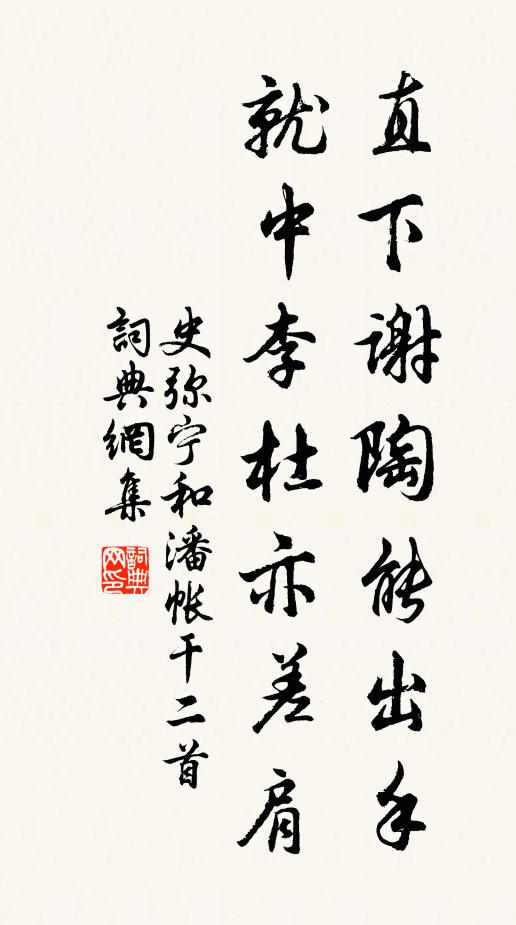 直下谢陶能出手
就中李杜亦差肩
史弥宁和潘帐干二首
詞典網集
詞典网印